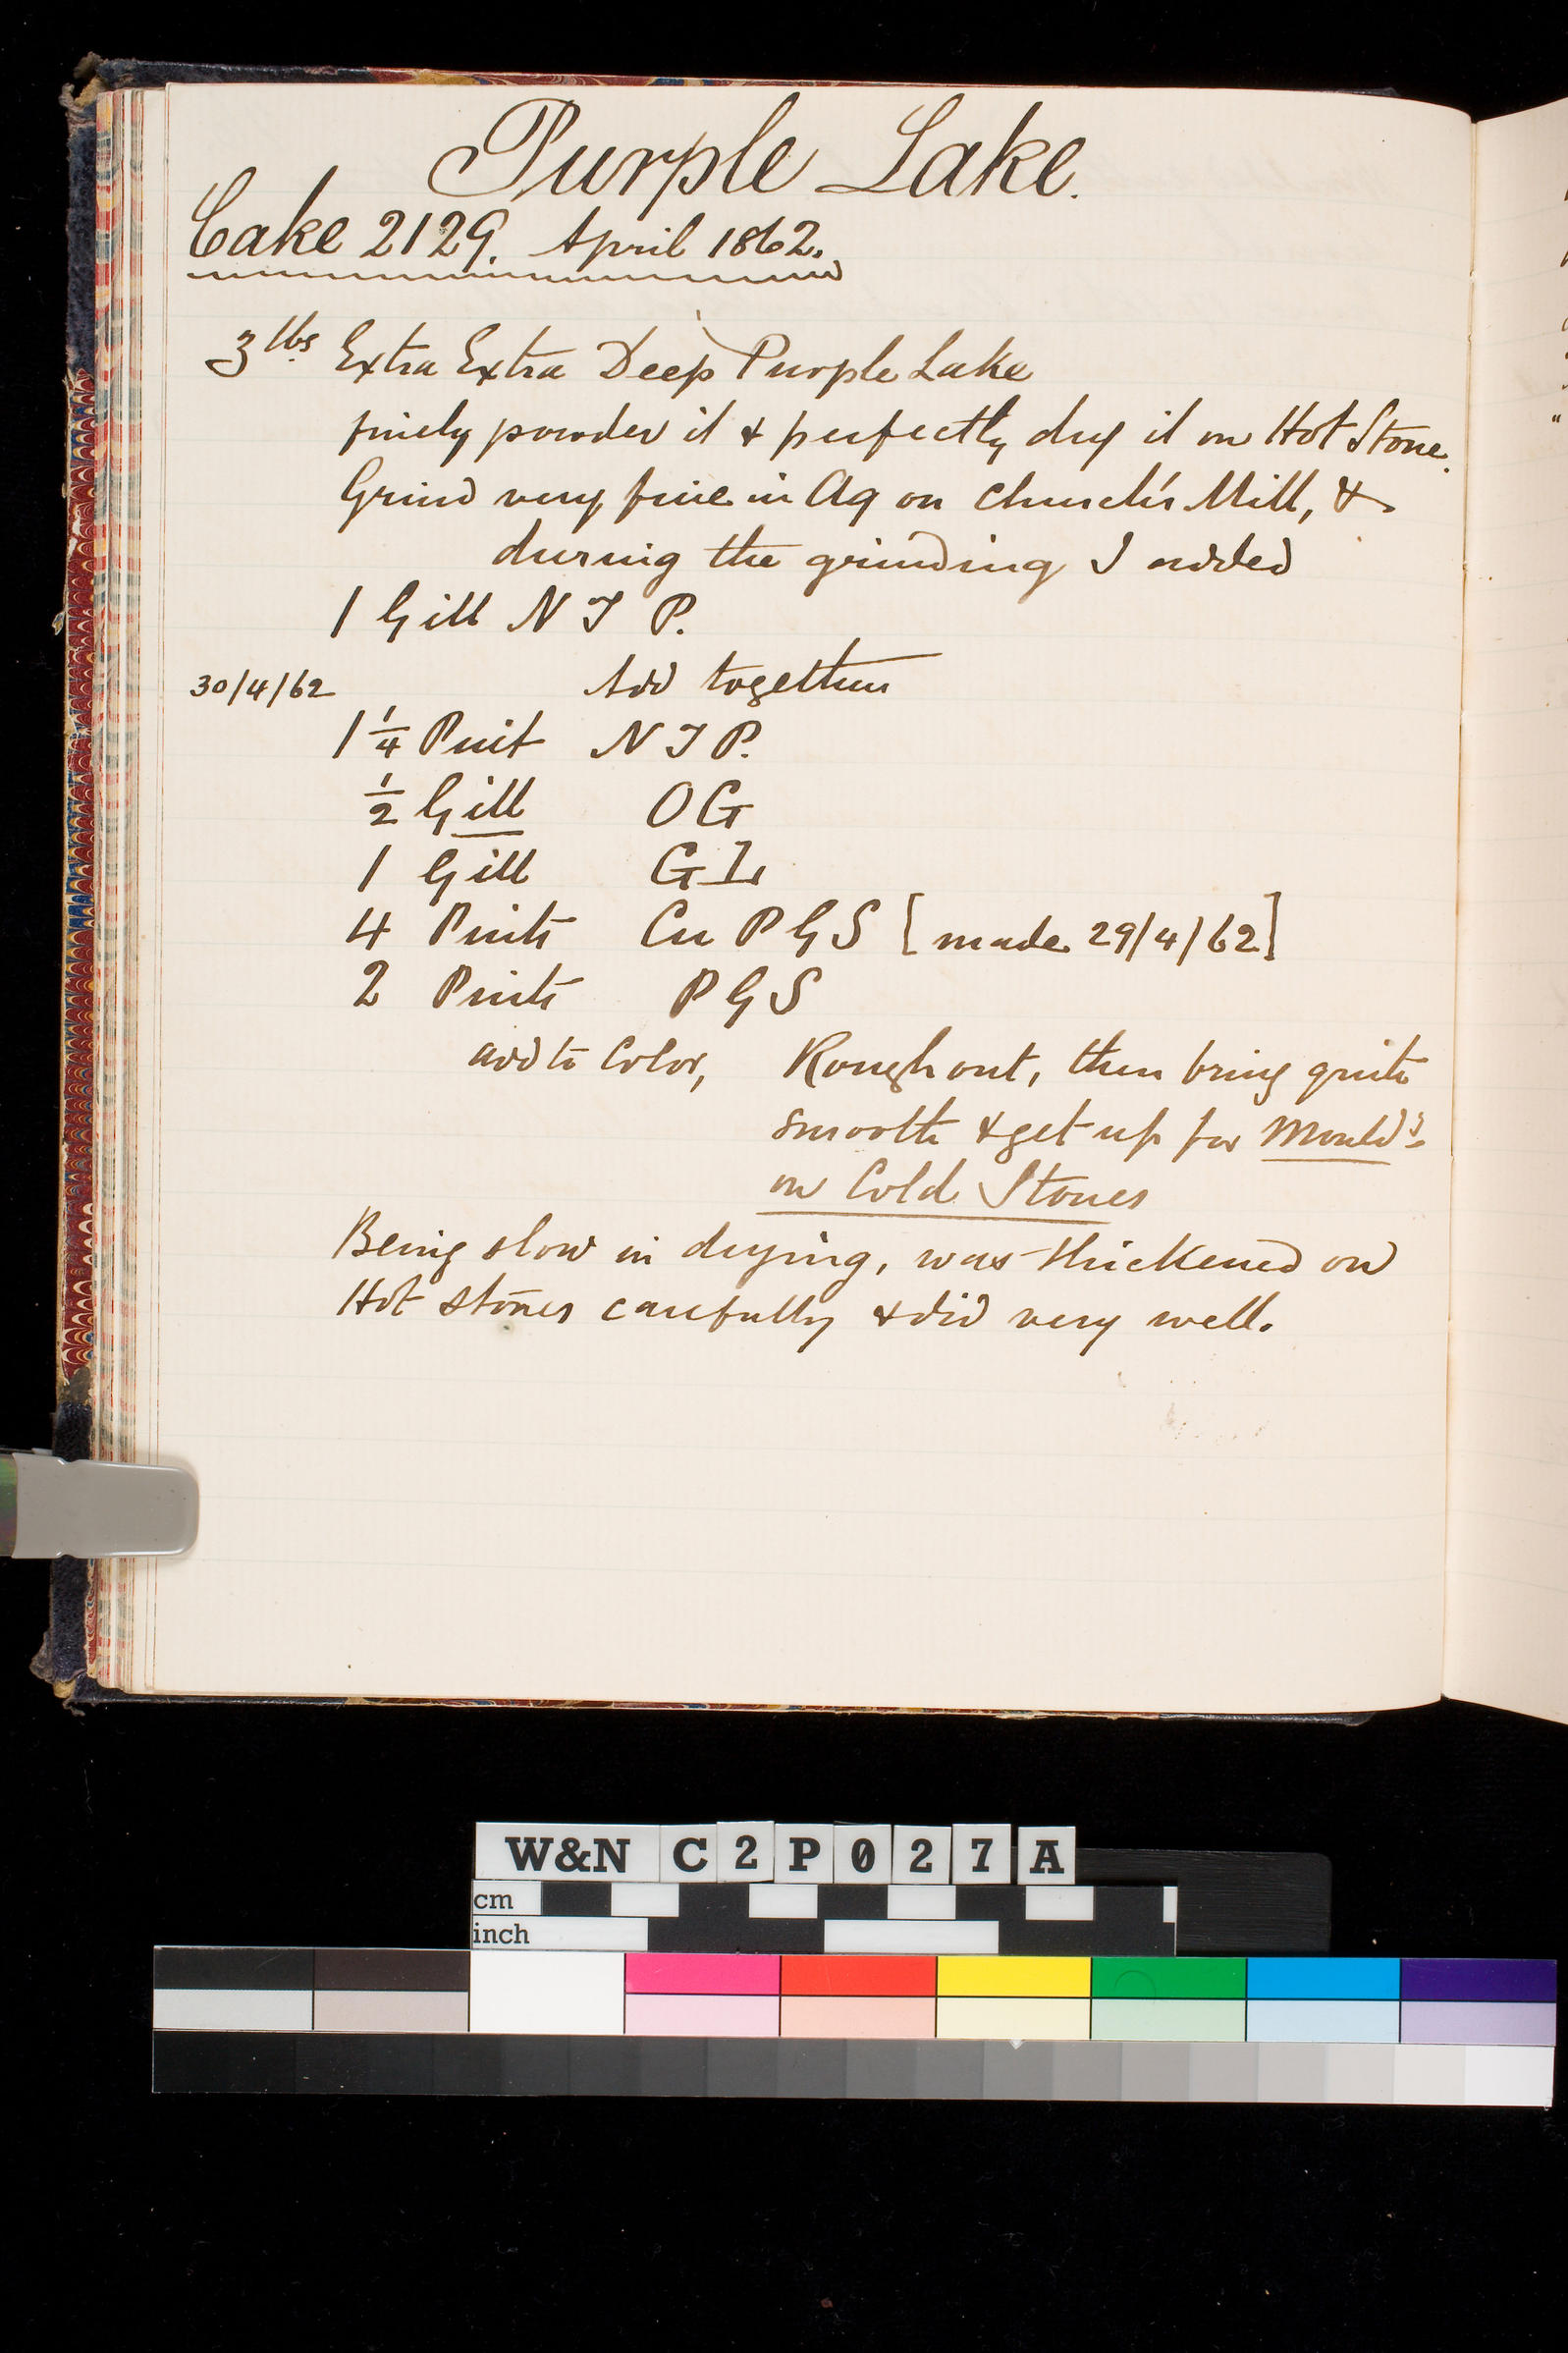 Purple Lake.
Cake 2129. April 1862.
3 lbs Extra Extra Deep Purple Lake
finely powder it & perfectly dry it on Hot Stone.
Grind very fine in Aq on Church's Mill, &
during the grinding I added
1 Gill N T P.
30/4/62 Add together
1 1/4 Pint N T P.
1/2 Gill O G
1 Gill G L
4 Pints Cu P G S [made 29/4/62]
2 Pints P G S
add to Color, Rough out, then bring quite
smooth & get up for Mould's
on Cold Stones
Being slow in drying, was thickened on
Hot stones carefully & did very well.
W&N C2P027A
cm
inch